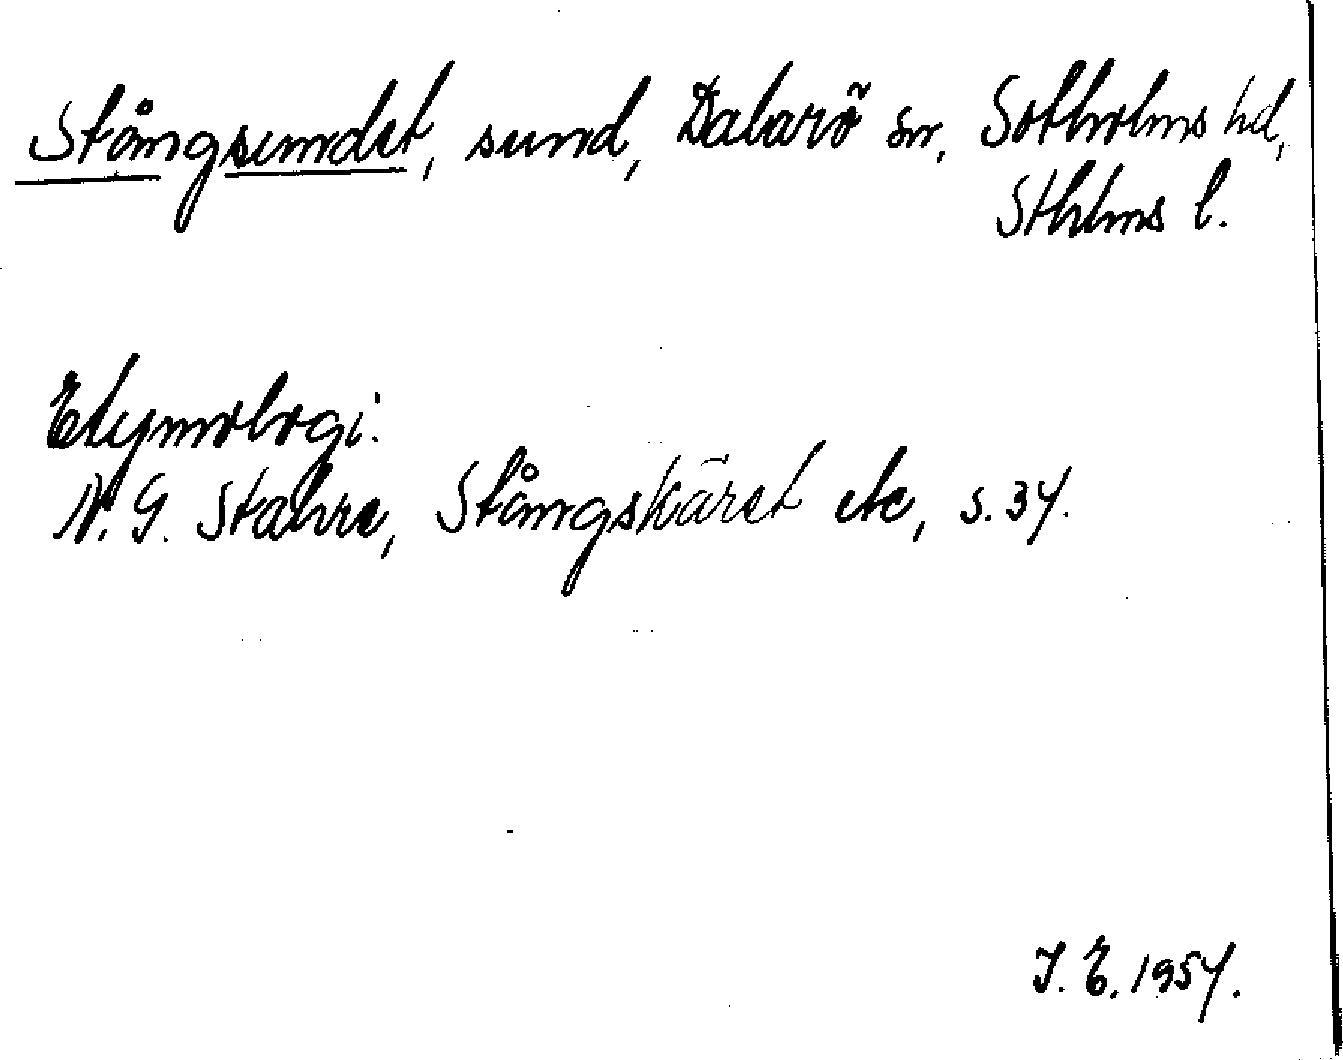 Stångsundet, sund, Dalarö sn, Sotholms hd,
Sthlms l.
Etymologi:
N. G. Stahre, Stångskäret etc, s. 37.
I. E. 1957.